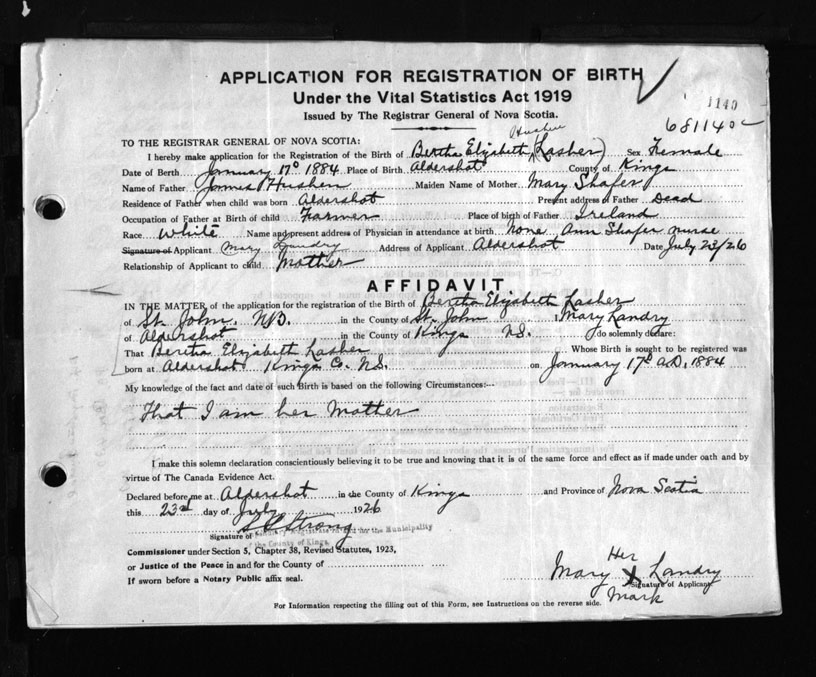 APPLICATION FOR REGISTRATION OF BIRTH
Under the Vital Statistics Act 1919
1140
Issued by The Registrar General of Nova Scotia.
68114
TO THE REGISTRAR GENERAL OF NOVA SCOTIA:
I hereby make application for the Registration of the Birth of Bertha Elizabeth (Lasher) Sex Female
Date of Birth January 17th 1884 Place of Birth Aldershot County of Kings
Name of Father James Hushen Maiden Name of Mother Mary Shafer
Residence of Father when child was born Aldershot Present address of Father Dead
Occupation of Father at Birth of child Farmer Place of birth of Father Ireland
Race White Name and present address of Physician in attendance at birth None Ann Shafer nurse
Signature of Applicant Mary Landry Address of Applicant Aldershot Date July 23/26
Relationship of Applicant to child Mother
AFFIDAVIT
IN THE MATTER of the application for the registration of the Birth of Bertha Elizabeth Lasher
of St. John. N.B. in the County of St. John I, Mary Landry
of Aldershot in the County of Kings N.S. do solemnly declare:
That Bertha Elizabeth Lasher Whose Birth is sought to be registered was
born at Aldershot Kings Co. N.S. on January 17th A.D. 1884
My knowledge of the fact and date of such Birth is based on the following Circumstances:—
That I am her Mother
I make this solemn declaration conscientiously believing it to be true and knowing that it is of the same force and effect as if made under oath and by
virtue of The Canada Evidence Act.
Declared before me at Aldershot in the County of Kings and Province of Nova Scotia
this 23rd day of July 1926
Strong
Signature of
for the Municipality
of the County of Kings.
Commissioner under Section 5, Chapter 38, Revised Statutes, 1923,
or Justice of the Peace in and for the County of
If sworn before a Notary Public affix seal.
Her
Mary X Landry
Signature of Applicant
Mark
For Information respecting the filling out of this Form, see Instructions on the reverse side.